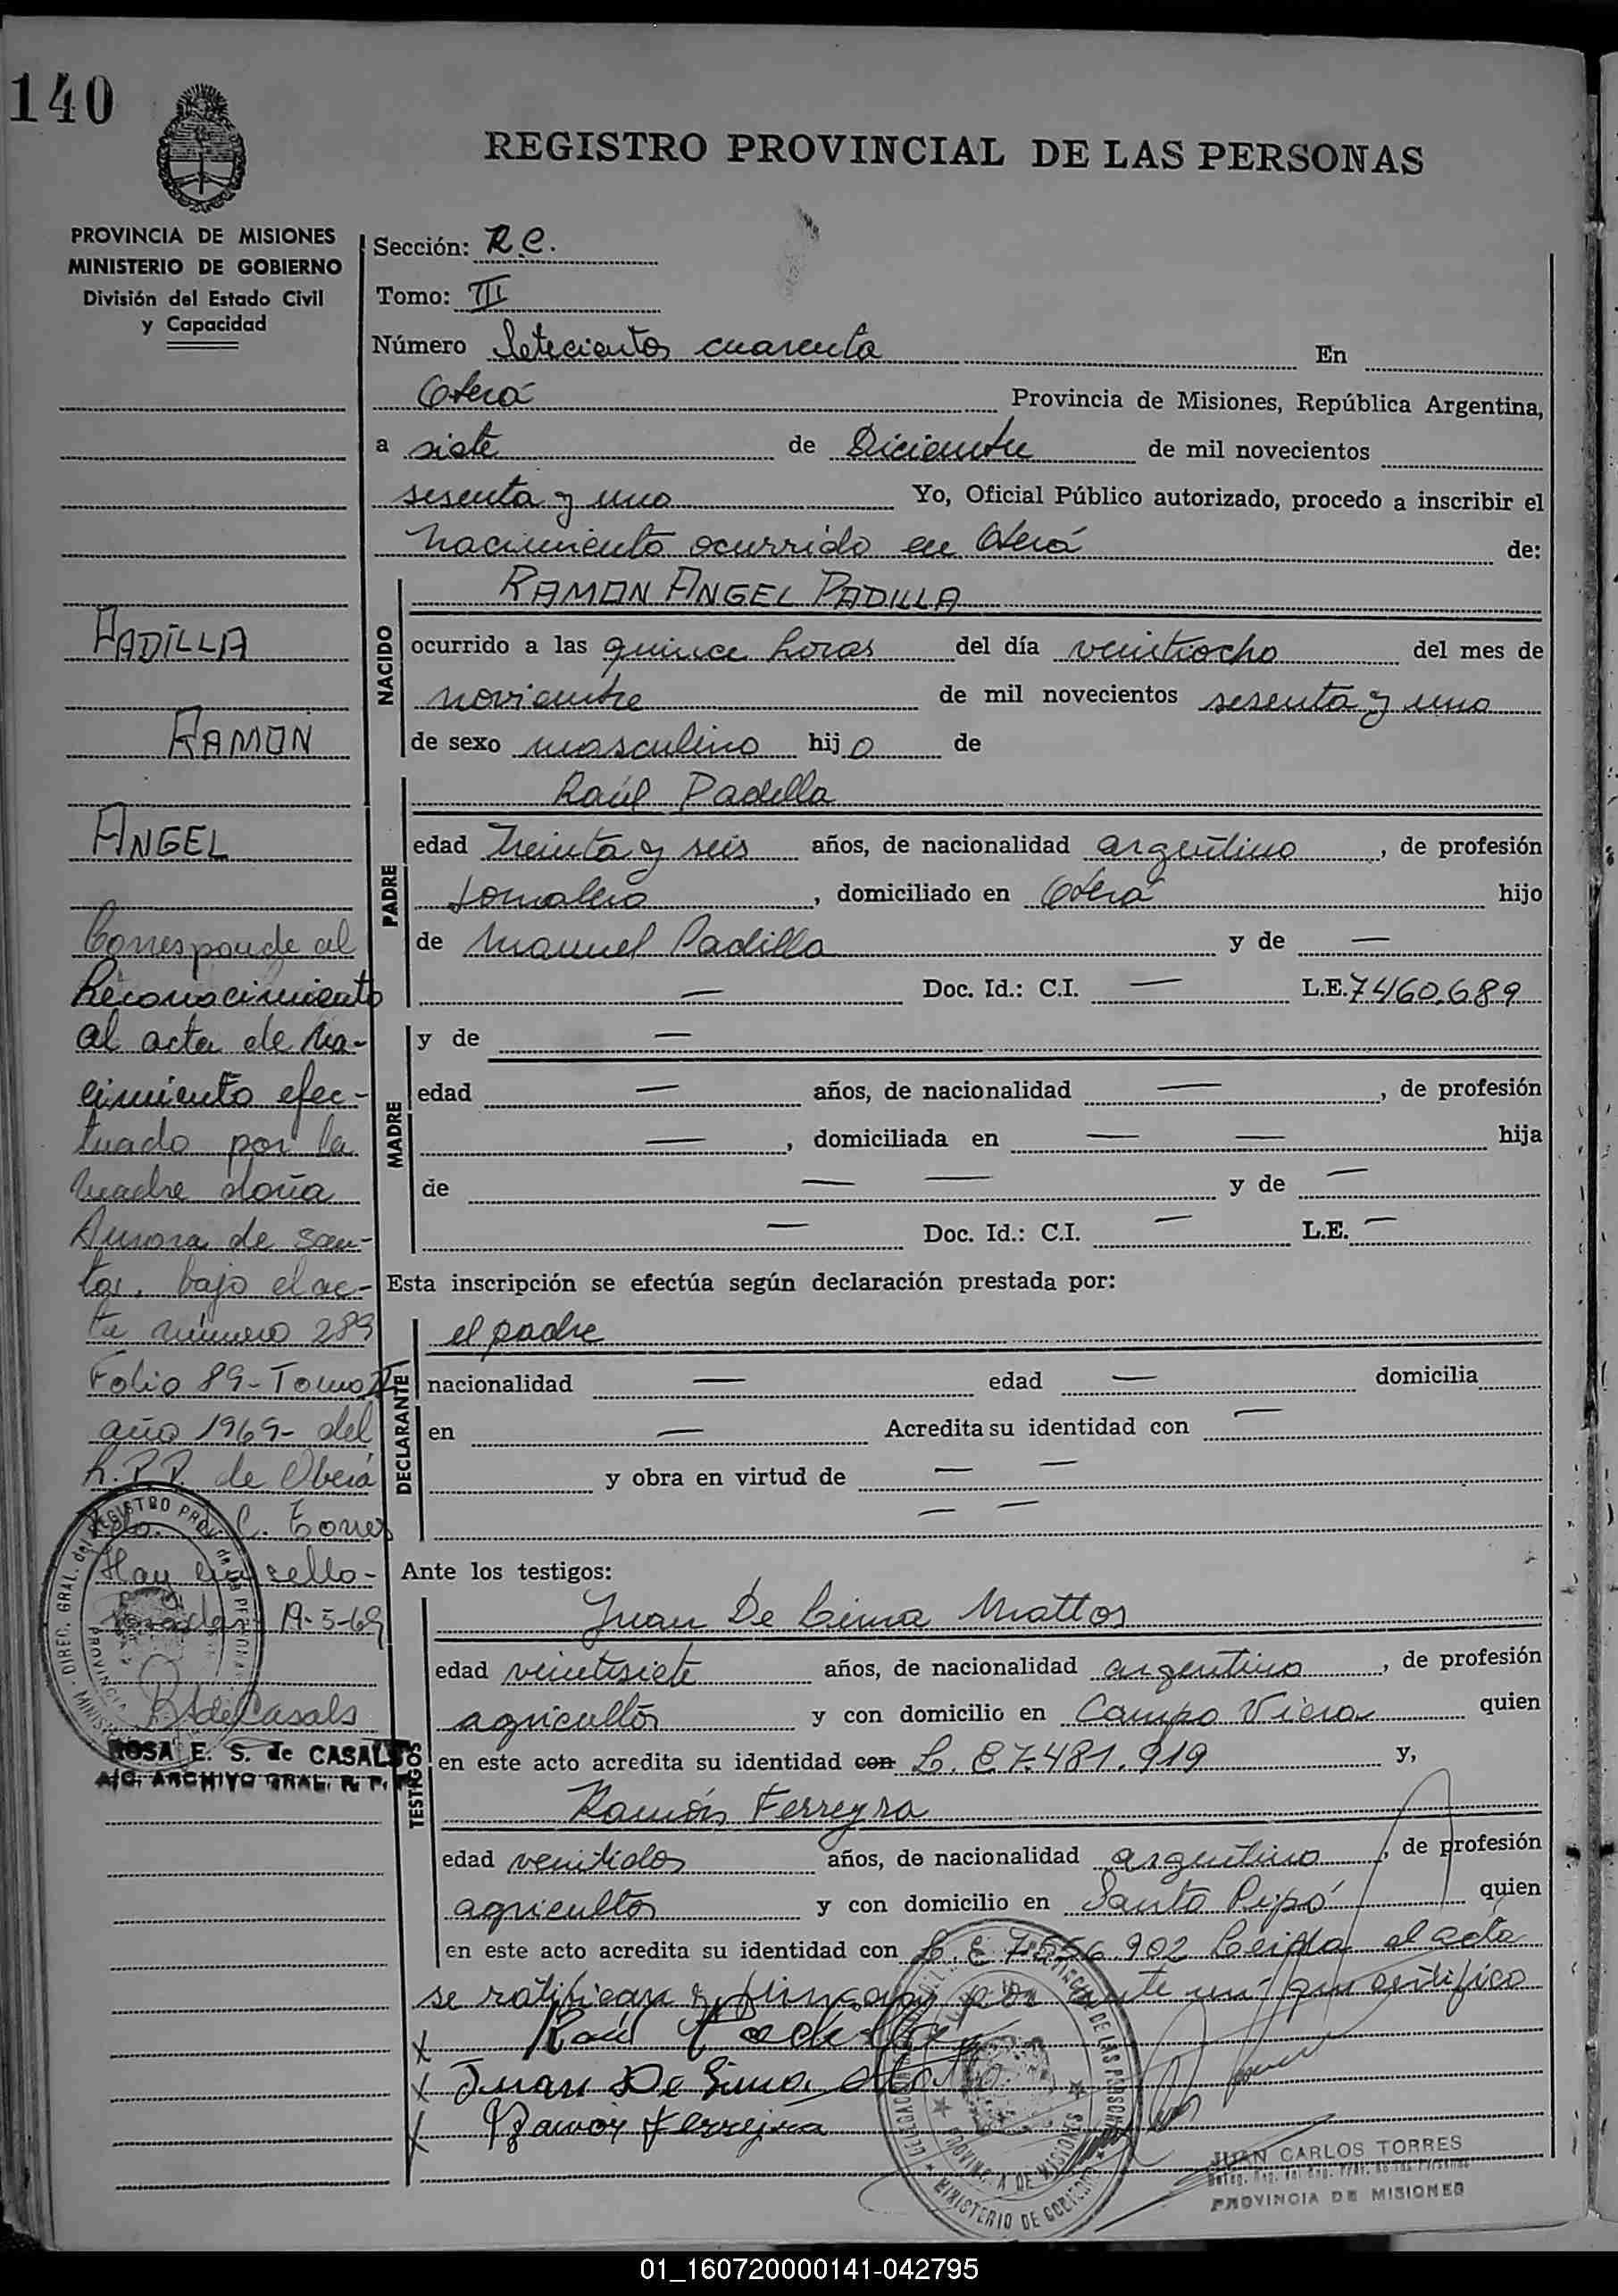 140
REGISTRO PROVINCIAL DE LAS PERSONAS
PROVINCIA DE MISIONES
MINISTERIO DE GOBIERNO
División del Estado Civil
y Capacidad
Sección: R.C.
Tomo: III
Número Setecientos cuarenta En
Oberá Provincia de Misiones, República Argentina,
a siete de Diciembre de mil novecientos
sesenta y uno Yo, Oficial Público autorizado, procedo a inscribir el
nacimiento ocurrido en Oberá de:
NACIDO
RAMON ANGEL PADILLA
ocurrido a las quince horas del día veintiocho del mes de
noviembre de mil novecientos sesenta y uno
de sexo masculino hijo de
PADRE
Raúl Padilla
edad treinta y seis años, de nacionalidad argentino, de profesión
Jornalero, domiciliado en Oberá hijo
de Manuel Padilla y de —
— Doc. Id.: C.I. — L.E. 7460.689
MADRE
y de —
edad — años, de nacionalidad —, de profesión
—, domiciliada en — — hija
de — — y de —
— Doc. Id.: C.I. — L.E. —
Esta inscripción se efectúa según declaración prestada por:
DECLARANTE
el padre
nacionalidad — edad — domicilia
en — Acredita su identidad con —
y obra en virtud de — —
— —
Ante los testigos:
TESTIGOS
Juan De Lima Mattos
edad veintisiete años, de nacionalidad argentino, de profesión
agricultor y con domicilio en Campo Viera quien
en este acto acredita su identidad con L. E 7.481.919 y,
Ramón Ferreyra
edad veintidos años, de nacionalidad argentino, de profesión
agricultor y con domicilio en Santo Pipó quien
en este acto acredita su identidad con L. E 7.556.902 Leida el acta
se ratifican y firman por ante mi que certifico
x Raúl Padilla
x Juan De Lima
x Ramón Ferreyra
JUAN CARLOS TORRES
PROVINCIA DE MISIONES
PADILLA
RAMON
ANGEL
Corresponde al
Reconocimiento
al acta de na-
cimiento efec-
tuado por la
madre doña
Aurora de San-
ta, bajo el ac-
ta número 289
Folio 89- Tomo II
año 1969- del
R.P.P. de Oberá
Fdo. C. Torres
Hay un sello-
Posadas 19-5-69
R de Casals
ROSA E. S. de CASALS
A/C. ARCHIVO GRAL. R. P. P.
DIREC. GRAL. del REGISTRO PROV. de las PERSONAS
PROVINCIA DE MISIONES
MINISTERIO DE GOBIERNO
01_160720000141-042795